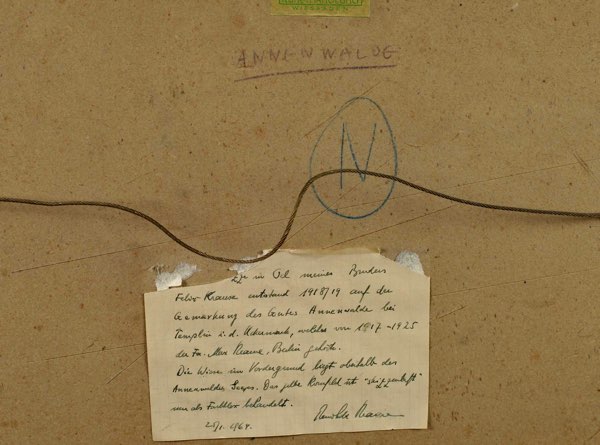 WIESBADEN
ANNENWALDE
N
in Öl meines Bruders
Felix Krause entstand 1918/19 auf der
Gemarkung des Gutes Annenwalde bei
Templin i. d. Uckermark, welches von 1917-1925
der Fa. Max Krause, Berlin gehörte.
Die Wiese im Vordergrund liegt oberhalb des
Annenwalder Sees. Das gelbe Kornfeld ist "skizzenhaft"
nur als Farbton behandelt.
1964. Krause